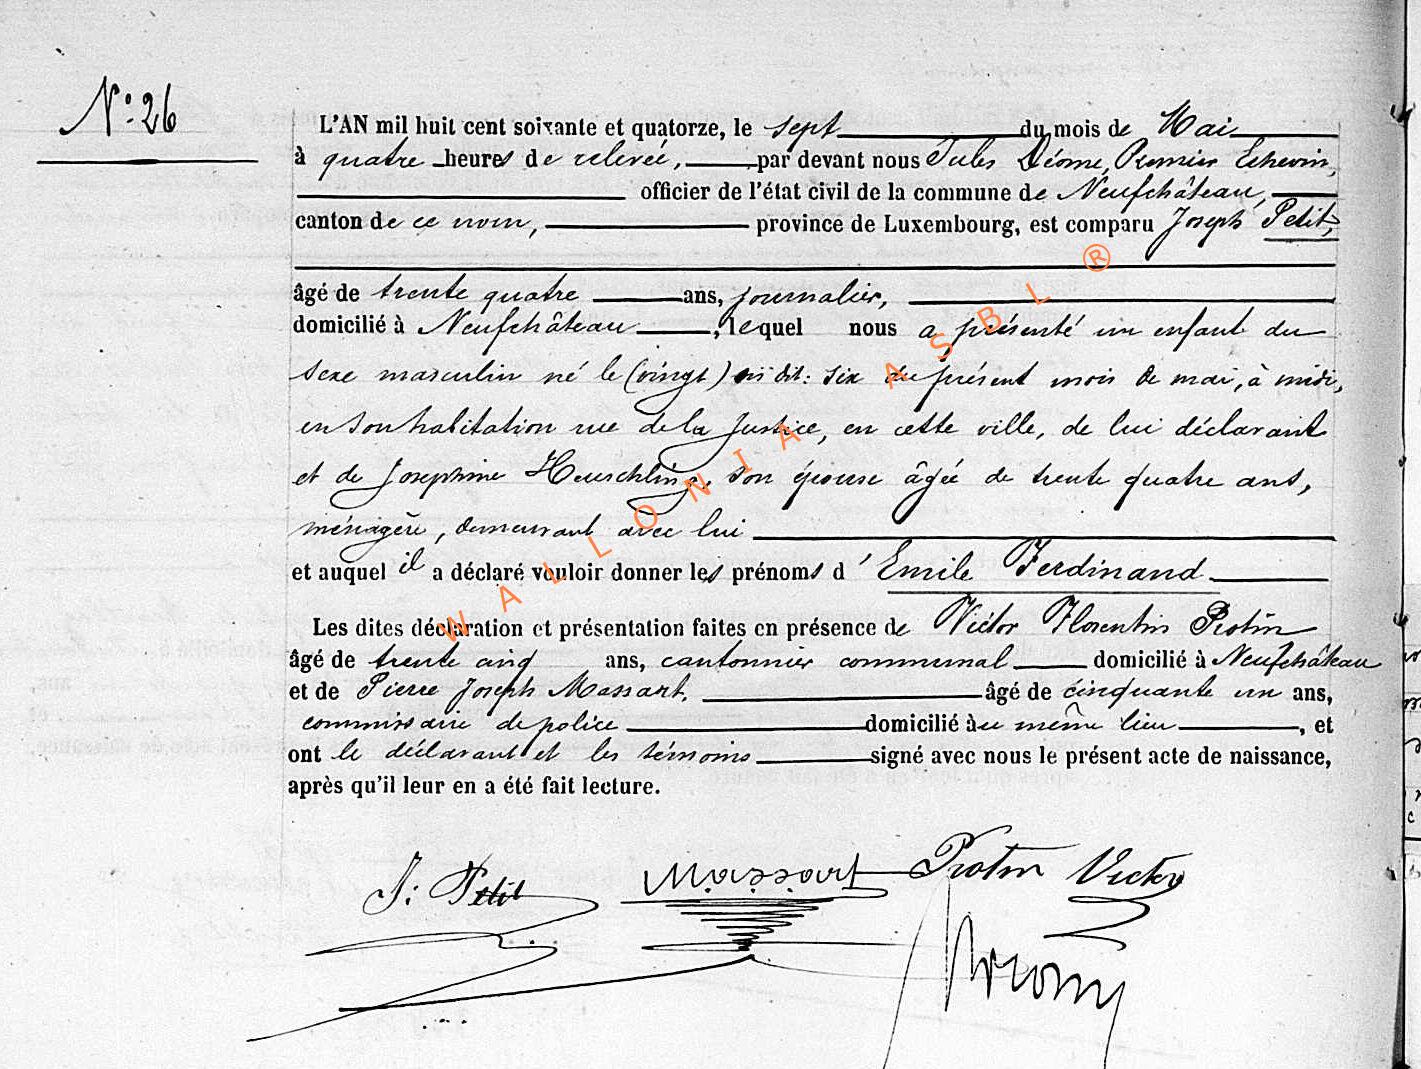 N°: 26
L'AN mil huit cent soixante et quatorze, le sept du mois de Mai
à quatre heures de relevée, par devant nous Jules Déome, Premier Echevin,
officier de l'état civil de la commune de Neufchâteau,
canton de ce nom, province de Luxembourg, est comparu Joseph Petit,
âgé de trente quatre ans, journalier,
domicilié à Neufchâteau, lequel nous a présenté un enfant du
sexe masculin né le (vingt) dit: six du présent mois de mai, à midi,
en son habitation rue de la Justice, en cette ville, de lui déclarant
et de Josephine Heuschling, son épouse âgée de trente quatre ans,
ménagère, demeurant avec lui
et auquel il a déclaré vouloir donner les prénoms d'Emile Ferdinand
Les dites déclaration et présentation faites en présence de Victor Florentin Protin
âgé de trente cinq ans, cantonnier communal domicilié à Neufchâteau
et de Pierre Joseph Massart, âgé de cinquante un ans,
commissaire de police domicilié au même lieu, et
ont le déclarant et les témoins signé avec nous le présent acte de naissance,
après qu'il leur en a été fait lecture.
J: Petit Massart Protin Victor
WALLONIA ASBL ®